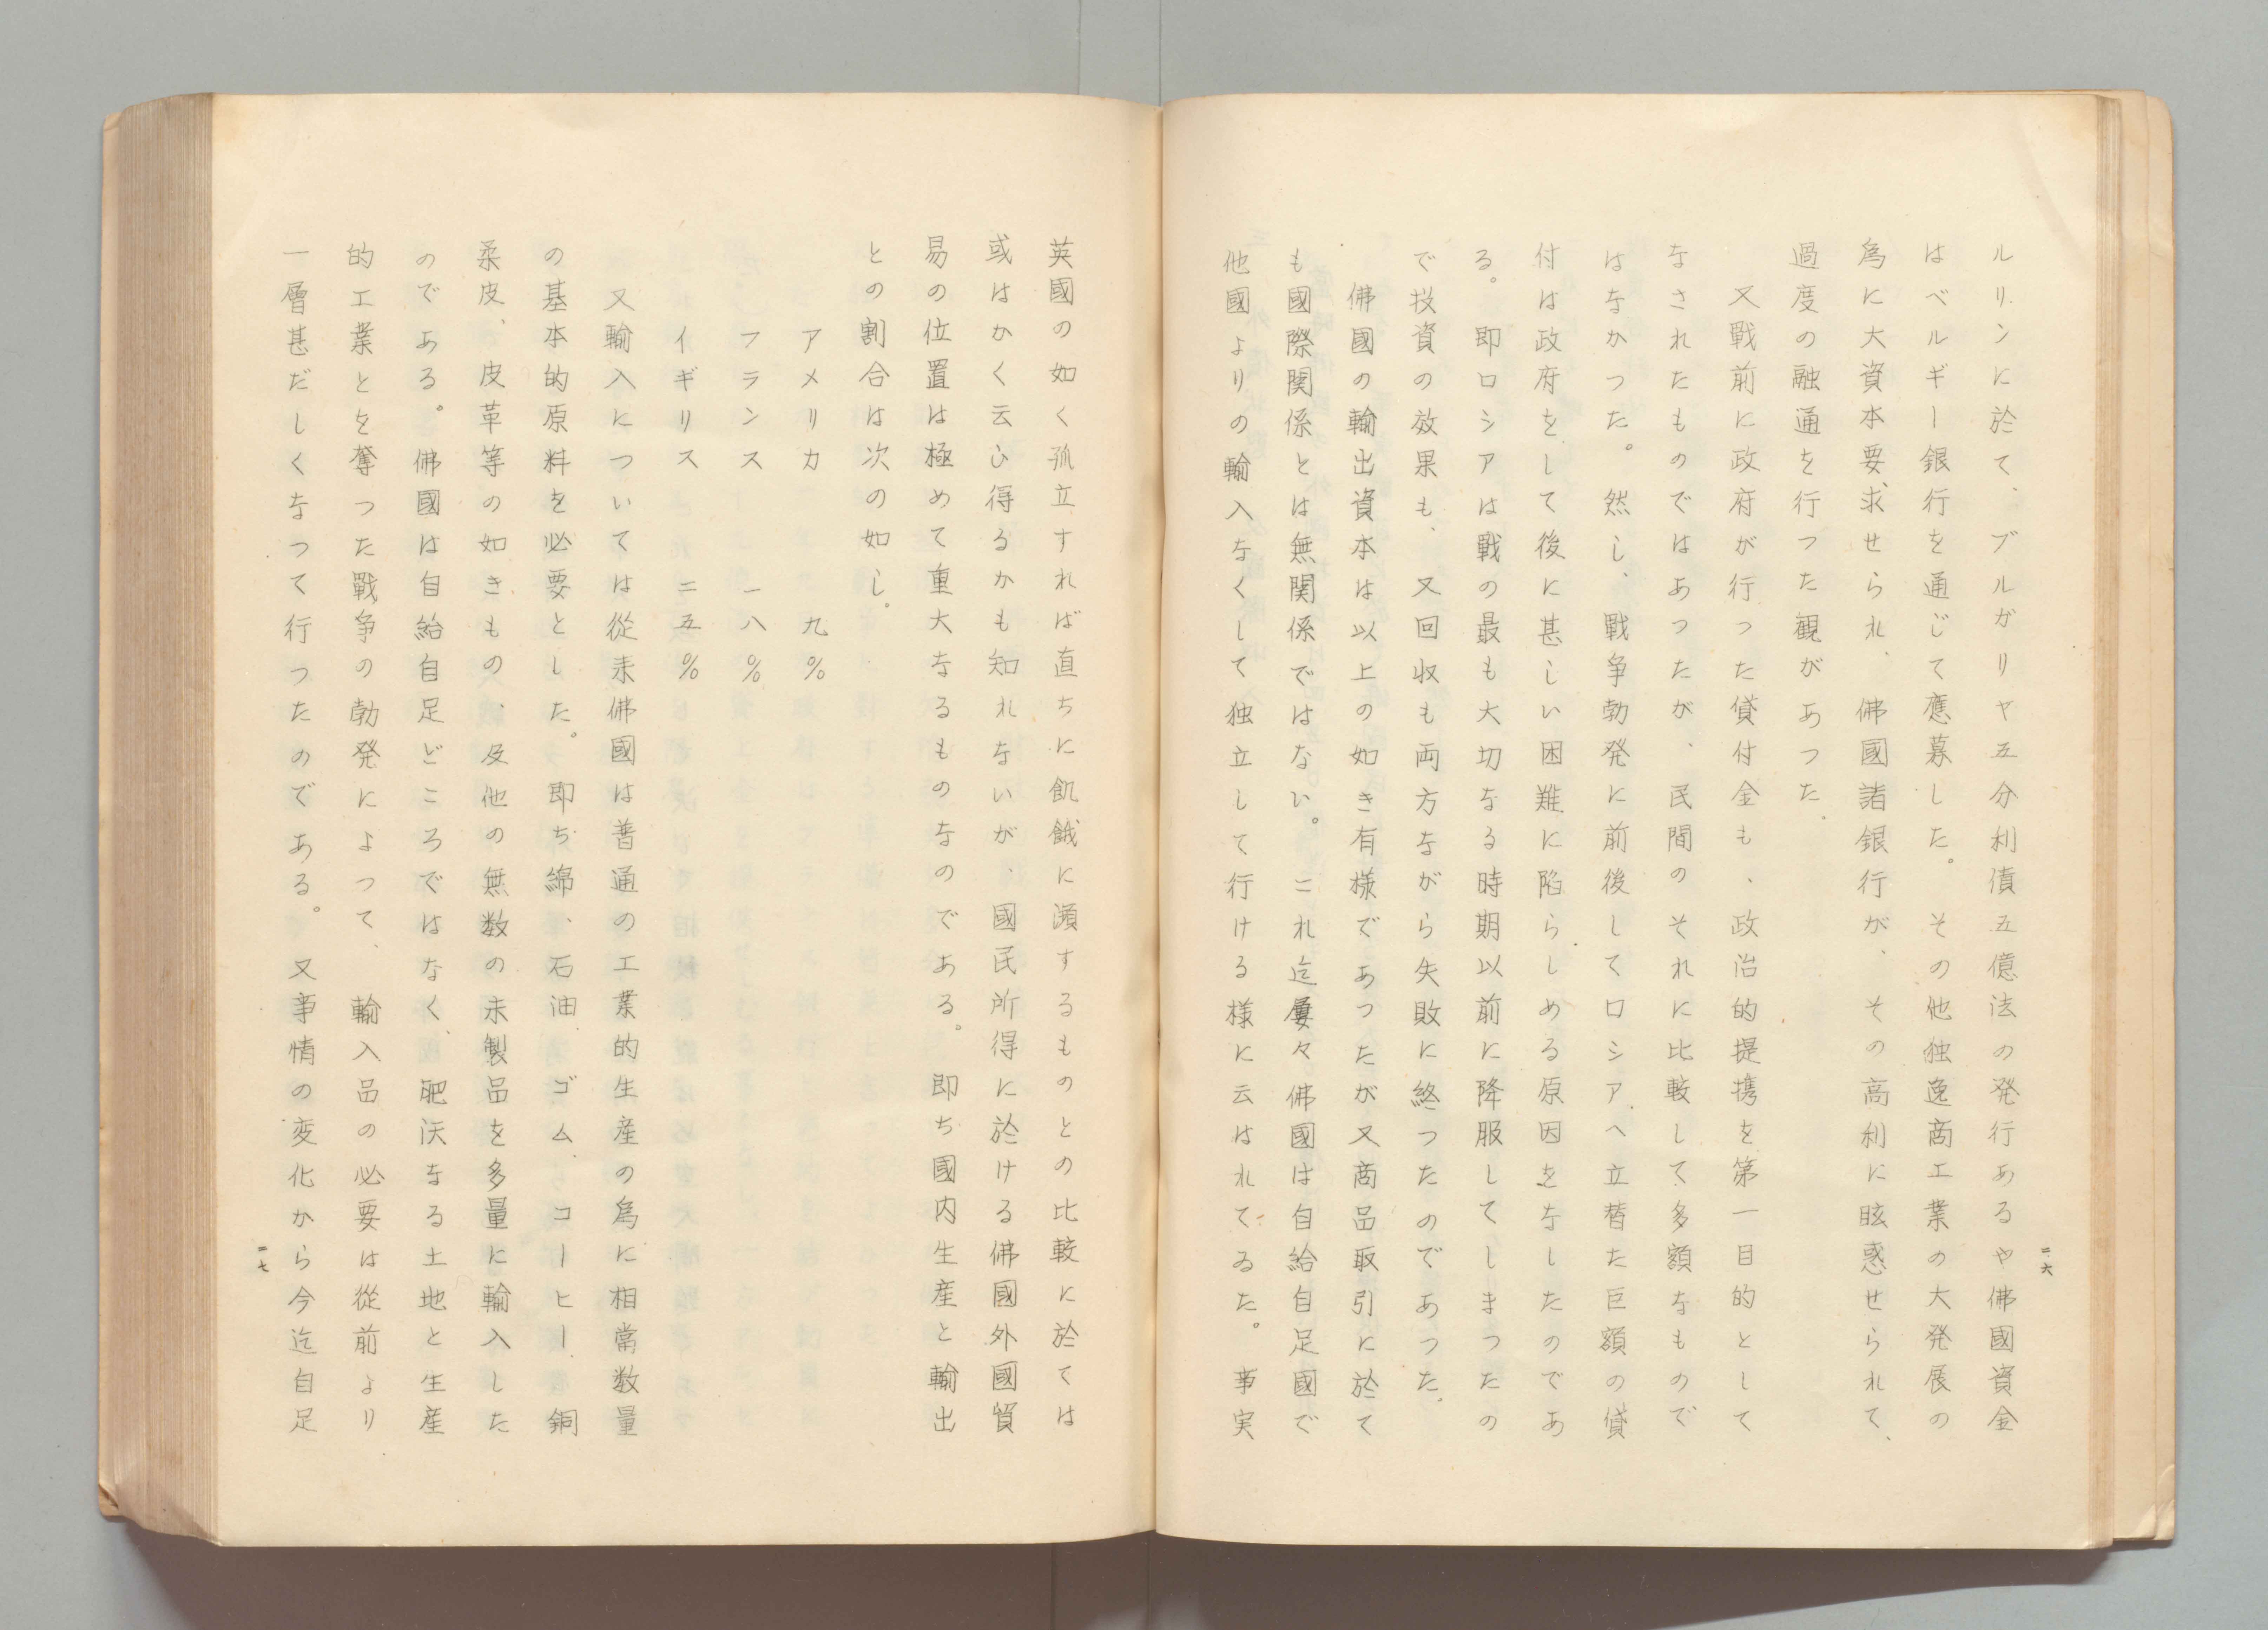 ルリンに於て、ブルガリヤ五分利債五億法の発行あるや佛國資金
はベルギー銀行を通じて應募した。その他独逸商工業の大発展の
為に大資本要求せられ、佛國諸銀行が、その高利に眩惑せられて、
過度の融通を行つた観があつた。
又戰前に政府が行つた貸付金も、政治的提携を第一目的として
なされたものではあつたが、民間のそれに比較して多額なもので
はなかつた。然し、戰争勃発に前後してロシアへ立替た巨額の貸
付は政府をして後に甚しい困難に陥らしめる原因をなしたのであ
る。即ロシアは戰の最も大切なる時期以前に降服してしまつたの
で投資の效果も、又回収も両方ながら失敗に終つたのであつた。
佛國の輸出資本は以上の如き有様であつたが又商品取引に於て
も國際関係とは無関係ではない。これ迄屡々佛國は自給自足國で
他國よりの輸入なくして独立して行ける様に云はれてゐた。事実
二六
英國の如く孤立すれば直ちに飢餓に瀕するものとの比較に於ては
或はかく云ひ得るかも知れないが、國民所得に於ける佛國外國貿
易の位置は極めて重大なるものなのである。即ち國内生産と輸出
との割合は次の如し。
アメリカ 九%
フランス 一八%
イギリス 二五%
又輸入については從来佛國は普通の工業的生産の為に相當数量
の基本的原料を必要とした。即ち綿、石油、ゴム、コーヒー、銅
柔皮、皮革等の如きもの、及他の無数の未製品を多量に輸入した
のである。佛國は自給自足どころではなく、肥沃なる土地と生産
的工業とを奪つた戰争の勃発によつて、輸入品の必要は從前より
一層甚だしくなつて行つたのである。又事情の変化から今迄自足
二七